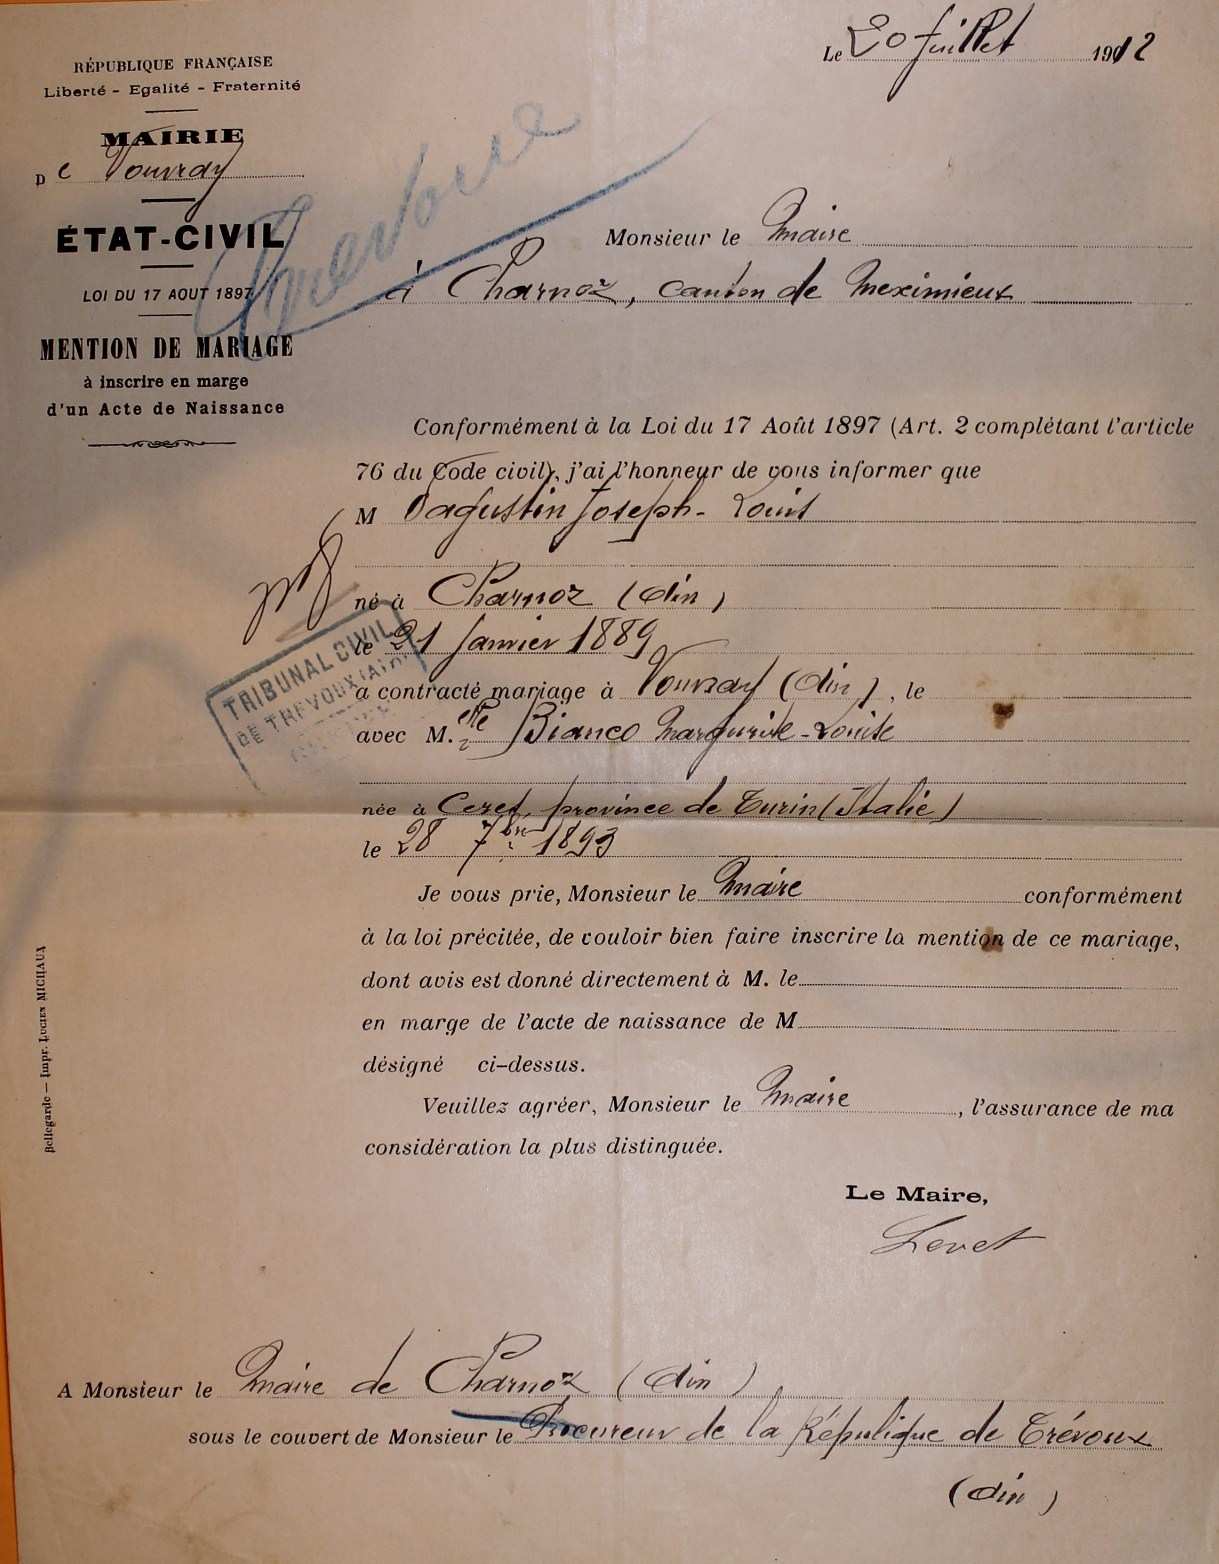 Le 20 Juillet 1912
RÉPUBLIQUE FRANÇAISE
Liberté - Egalité - Fraternité
MAIRIE
De Vouvray
ÉTAT-CIVIL
LOI DU 17 AOUT 1897
MENTION DE MARIAGE
à inscrire en marge
d'un Acte de Naissance
Monsieur le Maire
à Charnoz, canton de Meximieux
Conformément à la Loi du 17 Août 1897 (Art. 2 complétant l'article
76 du Code civil), j'ai l'honneur de vous informer que
M Dagustin Joseph-Louis
né à Charnoz (Ain)
le 21 Janvier 1889
TRIBUNAL CIVIL
DE TREVOUX (Ain)
a contracté mariage à Vouvray (Ain), le
avec M.elle Bianco Marguerite-Louise
née à Ceres, province de Turin (Italie)
le 28 7bre 1893
Je vous prie, Monsieur le Maire conformément
à la loi précitée, de vouloir bien faire inscrire la mention de ce mariage,
dont avis est donné directement à M. le
en marge de l'acte de naissance de M
désigné ci-dessus.
Veuillez agréer, Monsieur le Maire, l'assurance de ma
considération la plus distinguée.
Le Maire,
Levet
A Monsieur le Maire de Charnoz (Ain)
sous le couvert de Monsieur le Procureur de la République de Trévoux
(Ain)
Bellegarde — Impr. LUCIEN MICHAUX